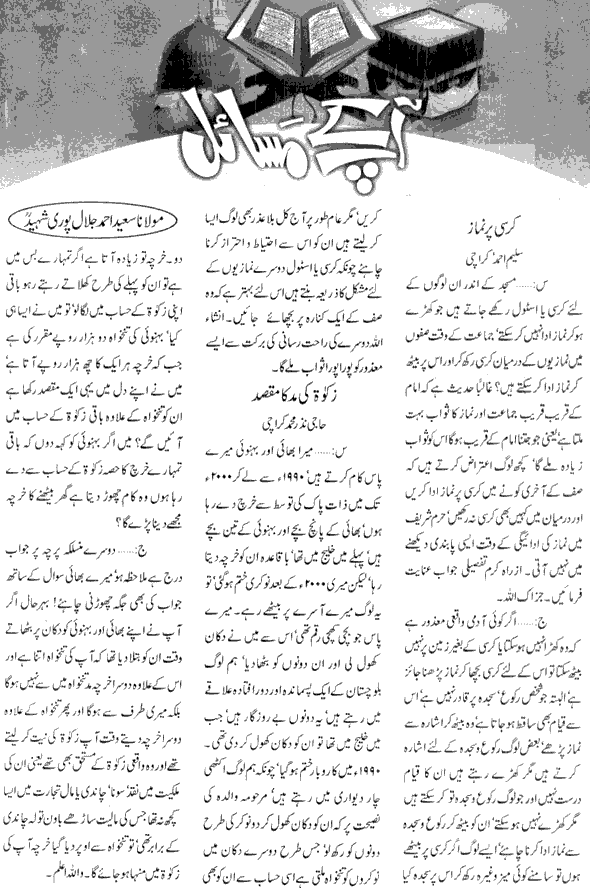 آپ کے مسائل
مولانا سعید احمد جلال پوری شہیدؒ
کرسی پر نماز
سلیم احمد‘ کراچی
س:...... مسجد کے اندر ان لوگوں کے
لئے کرسی یا اسٹول رکھے جاتے ہیں جو کھڑے
ہوکر نماز ادا نہیں کرسکتے‘ جماعت کے وقت صفوں
میں نمازیوں کے درمیان کرسی رکھ کر اور اس پر بیٹھ
کر نماز ادا کرسکتے ہیں؟ غالباً حدیث ہے کہ امام
کے قریب قریب جماعت اور نماز کا ثواب بہت
ملتا ہے‘ یعنی جو جتنا امام کے قریب ہوگا اس کو ثواب
زیادہ ملے گا‘ کچھ لوگ اعتراض کرتے ہیں کہ
صف کے آخری کونے میں کرسی پر نماز ادا کریں
اور درمیان میں کہیں بھی کرسی نہ رکھیں‘ حرم شریف
میں نماز کی ادائیگی کے وقت ایسی پابندی دیکھنے
میں نہیں آتی۔ ازراہ کرم تفصیلی جواب عنایت
فرمائیں۔ جزاک اللہ۔
ج:...... اگر کوئی آدمی واقعی معذور ہے
کہ وہ کھڑا نہیں ہوسکتا یا کرسی کے بغیر زمین پر نہیں
بیٹھ سکتا تو اس کے لئے کرسی بچھا کر نماز پڑھنا جائز
ہے‘ البتہ جو شخص رکوع‘ سجدہ پر قادر نہیں ہے‘ اس
سے قیام بھی ساقط ہوجاتا ہے‘ وہ بیٹھ کر اشارہ سے
نماز پڑھے‘ بعض لوگ رکوع و سجدہ کے لئے اشارہ
کرتے ہیں مگر کھڑے رہتے ہیں ان کا قیام
درست نہیں اور جو لوگ رکوع و سجدہ تو کرسکتے ہیں
مگر کھڑے نہیں ہوسکتے‘ ان کو بیٹھ کر رکوع و سجدہ
سے نماز ادا کرنا چاہئے‘ ایسے لوگ اگر کرسی پر بیٹھے
ہوں تو سامنے کوئی میز وغیرہ رکھ کر اس پر سجدہ کیا
کریں‘ مگر عام طور پر آج کل بلا عذر بھی لوگ ایسا
کرلیتے ہیں ان کو اس سے احتیاط و احتراز کرنا
چاہئے چونکہ کرسی یا اسٹول دوسرے نمازیوں کے
لئے مشکل کا ذریعہ بنتے ہیں اس لئے بہتر ہے کہ وہ
صف کے ایک کنارہ پر بچھائے جائیں۔ انشاء
اللہ دوسرے کی راحت رسانی کی برکت سے ایسے
معذور کو پورا پورا ثواب ملے گا۔
زکوٰۃ کی مد کا مقصد
حاجی نذر محمد‘ کراچی
س:...... میرا بھائی اور بہنوئی میرے
پاس کام کرتے ہیں‘ ۱۹۹۰ء سے لے کر ۲۰۰۰ء
تک میں ذات پاک کی توسط سے خرچ دے رہا
ہوں‘ بھائی کے پانچ بچے اور بہنوئی کے تین بچے
ہیں‘ پہلے میں خلیج میں تھا‘ باقاعدہ ان کو خرچہ دیتا
رہا‘ لیکن میری ۲۰۰۰ء کے بعد نوکری ختم ہوگئی‘ تو
یہ لوگ میرے آسرے پر بیٹھے رہے۔ میرے
پاس جو بچی کھچی رقم تھی‘ اس سے میں نے دکان
کھول لی اور ان دونوں کو بٹھا دیا‘ ہم لوگ
بلوچستان کے ایک پسماندہ اور دور افتادہ علاقے
میں رہتے ہیں‘ یہ دونوں بے روزگار ہیں‘ جب
میں خلیج میں تھا تو ان کو دکان کھول کر دی تھی۔
۱۹۹۰ء میں کاروبار ختم ہوگیا‘ چونکہ ہم لوگ اکٹھی
چار دیواری میں رہتے ہیں‘ مرحومہ والدہ کی
نصیحت پر کہ ان کو دکان کھول کر دو نوکر کی طرح
دونوں کو رکھ لو‘ جس طرح دوسرے دکان میں
نوکروں کو تنخواہ ملتی ہے اسی حساب سے ان کو بھی
دو۔ خرچہ تو زیادہ آتا ہے اگر تمہارے بس میں
ہے تو ان کو پہلے کی طرح کھلاتے رہتے رہو باقی
اپنی زکوٰۃ کے حساب میں لگالو‘ تو میں نے ایسا ہی
کیا‘ بہنوئی کی تنخواہ دو ہزار روپے مقرر کی ہے
جب کہ خرچہ ہر ایک کا چھ ہزار روپے آتا ہے‘
میں نے اپنے دل میں یہی ایک مقصد رکھا ہے
ان کو تنخواہ کے علاوہ باقی زکوٰۃ کے حساب میں
آئیں گے؟ میں اگر بہنوئی کو کہہ دوں کہ باقی
تمہارے خرچ کا حصہ زکوٰۃ کے حساب سے دے
رہا ہوں وہ کام چھوڑ دیتا ہے گھر بیٹھنے کا خرچہ
مجھے دینا پڑے گا؟
ج:...... دوسرے مسئلہ پر چہ پر جواب
درج ہے ملاحظہ ہو‘ میرے بھائی سوال کے ساتھ
جواب کی بھی جگہ چھوڑنی چاہئے! بہرحال اگر
آپ نے اپنے بھائی اور بہنوئی کو دکان پر بٹھاتے
وقت ان کو بتلا دیا تھا کہ آپ کی تنخواہ اتنا ہے اور
اس کے علاوہ دوسرا خرچہ مد تنخواہ میں سے نہیں ہوگا
بلکہ میری طرف سے ہوگا اور پھر تنخواہ کے علاوہ
دوسرا خرچہ دیتے وقت آپ زکوٰۃ کی نیت کرلیتے
تھے اور وہ واقعی زکوٰۃ کے مستحق بھی تھے یعنی ان کی
ملکیت میں نقد‘ سونا‘ چاندی یا مال تجارت میں ایسا
کچھ نہ تھا‘ جس کی مالیت ساڑھے باون تولہ چاندی
کے برابر تھی‘ تو تنخواہ سے اوپر دیا گیا خرچہ آپ کی
زکوٰۃ میں منہا ہوجائے گا۔ واللہ اعلم۔